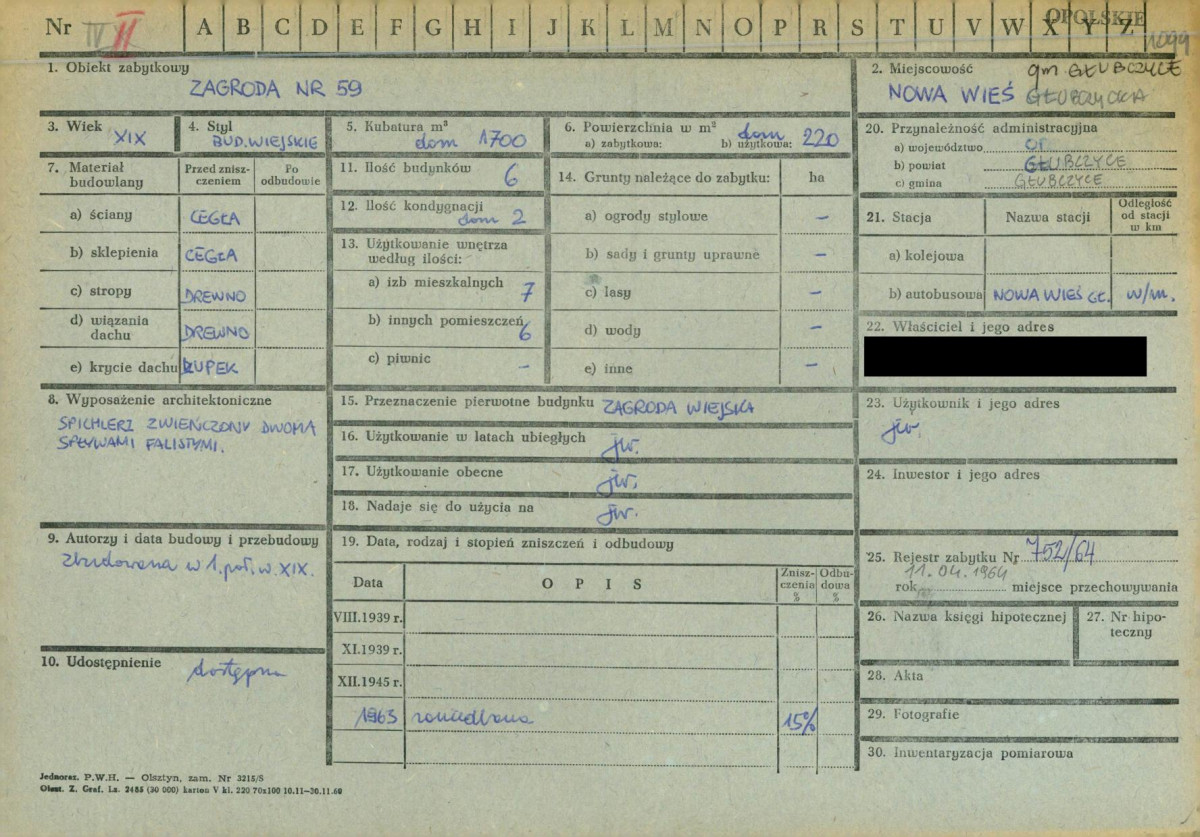 Nr IV II A B C D E F G H I J K L M N O P R S T U V W X Y Z OPOLSKIE
1099
1. Obiekt zabytkowy
ZAGRODA NR 59
2. Miejscowość gm. GŁUBCZYCE
NOWA WIEŚ GŁUBCZYCKA
3. Wiek
XIX
4. Styl
BUD. WIEJSKIE
5. Kubatura m³
dom 1700
6. Powierzchnia w m² dom
a) zabytkowa: b) użytkowa: 220
7. Materiał budowlany
Przed zniszczeniem
Po odbudowie
a) ściany CEGŁA
b) sklepienia CEGŁA
c) stropy DREWNO
d) wiązania dachu DREWNO
e) krycie dachu ŁUPEK
8. Wyposażenie architektoniczne
SPICHLERZ ZWIEŃCZONY DWOMA
SPŁYWAMI FALISTYMI.
9. Autorzy i data budowy i przebudowy
Zbudowana w 1. poł. w. XIX.
10. Udostępnienie dostępna
11. Ilość budynków 6
12. Ilość kondygnacji
dom 2
13. Użytkowanie wnętrza
według ilości:
a) izb mieszkalnych 7
b) innych pomieszczeń 6
c) piwnic –
14. Grunty należące do zabytku: ha
a) ogrody stylowe –
b) sady i grunty uprawne –
c) lasy –
d) wody –
e) inne –
15. Przeznaczenie pierwotne budynku ZAGRODA WIEJSKA
16. Użytkowanie w latach ubiegłych jw.
17. Użytkowanie obecne jw.
18. Nadaje się do użycia na jw.
19. Data, rodzaj i stopień zniszczeń i odbudowy
Data OPIS Zniszczenia % Odbudowa %
VIII.1939 r.
XI.1939 r.
XII.1945 r.
1963 zaniedbana 15%
20. Przynależność administracyjna
a) województwo OP
b) powiat GŁUBCZYCE
c) gmina GŁUBCZYCE
21. Stacja Nazwa stacji Odległość od stacji w km
a) kolejowa
b) autobusowa NOWA WIEŚ GŁ. w/m.
22. Właściciel i jego adres
23. Użytkownik i jego adres
jw.
24. Inwestor i jego adres
25. Rejestr zabytku Nr 752/64
11.04.1964
rok miejsce przechowywania
26. Nazwa księgi hipotecznej
27. Nr hipoteczny
28. Akta
29. Fotografie
30. Inwentaryzacja pomiarowa
Jednoraz. P.W.H. — Olsztyn, zam. Nr 3215/S
Olszt. Z. Graf. Lz. 2485 (30 000) karton V kl. 220 70x100 10.11—30.11.60